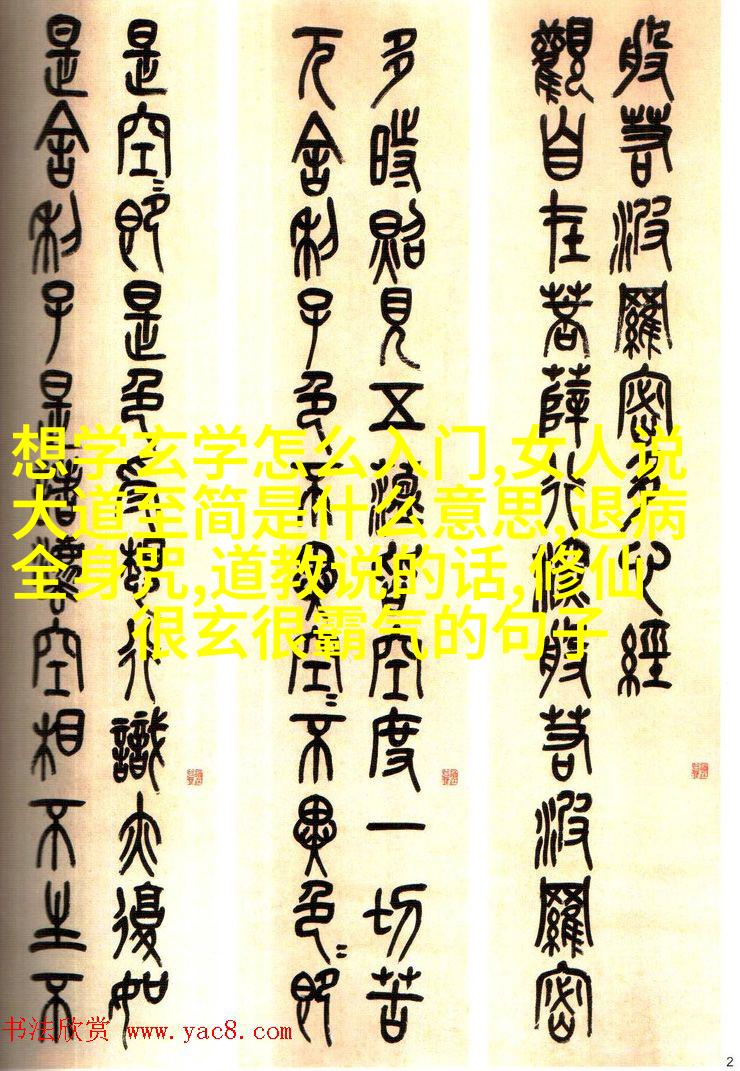 般若波羅密多心經
觀自在菩薩行深般若波羅密
多時照見五蘊皆空度一切苦
厄舍利子色不異空〻不異色〻即
是空〻即是色受想行識亦復如
是舍利子是諸法空相不生不
想学玄学怎么入门,女人说
大道至简是什么意思,退病
全身咒,道教说的话,修仙
很玄很霸气的句子
书法欣赏 www.yac8.com
2